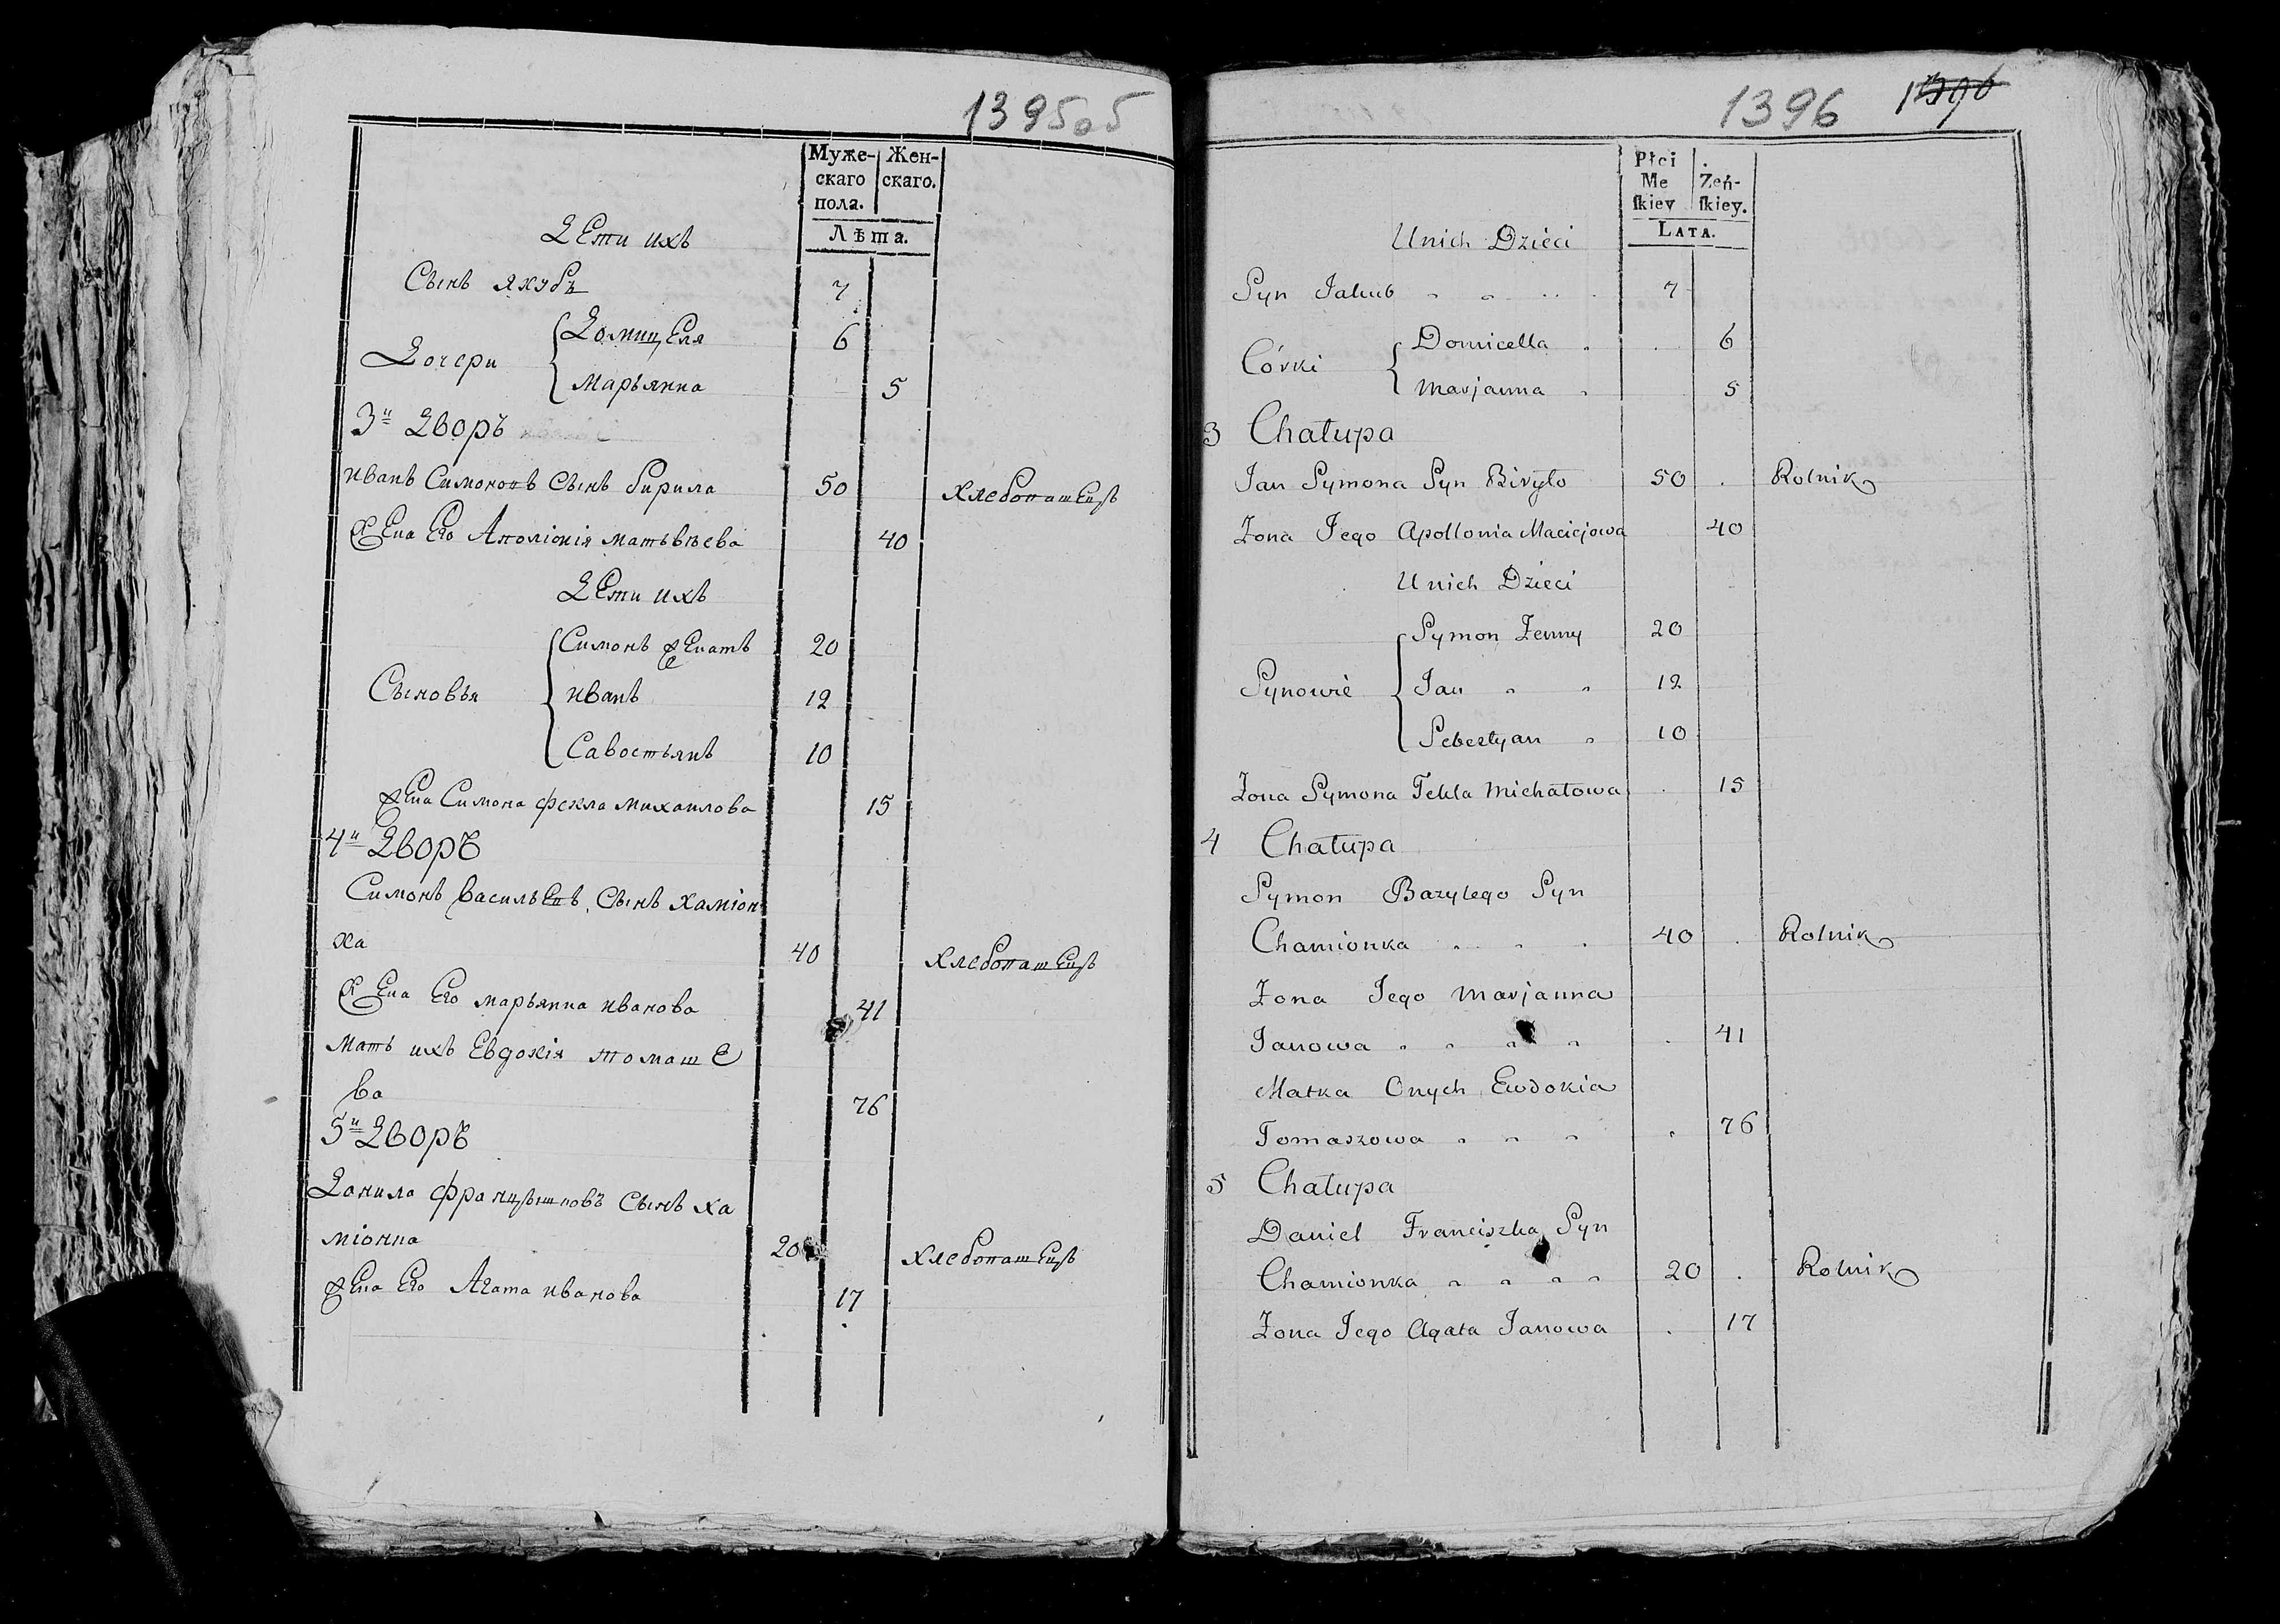 1395
Муже- Жен-
скаго скаго.
пола.
Лѣта.
Дети ихъ
Сынъ Якубъ 7
Дочери
Домицеля 6
Марьянна 5
3й Дворъ
Иванъ Симоновъ Сынъ Бирила 50 Хлебопашецъ
Жена Его Аполіонія Матьвѣева 40
Дети ихъ
Симонъ Женатъ 20
Сыновья Иванъ 12
Савостьянъ 10
Жена Симона Фекла Михаилова 15
4й Дворъ
Симонъ Васильевъ Сынъ Хаміон
ка 40 Хлебопашецъ
Жена Его Марьянна Иванова 41
Мать ихъ Евдокія Томаше
ва 76
5й Дворъ
Данила Францышковъ Сынъ Ха
міонка 20 Хлебопашецъ
Жена Его Агата Иванова 17
1396 1396
Płci
Me Żeń-
ſkiey ſkiey.
LATA.
Unich Dzieci
Syn Jakub 7
Córki
Domicella 6
Marjanna 5
3 Chałupa
Jan Symona Syn Biryło 50 Rolnik
Żona Jego Apollonia Maciejowa 40
Unich Dzieci
Symon Żenny 20
Synowie Jan 12
Sebestyan 10
Żona Symona Tekla Michałowa 15
4 Chałupa
Symon Bazylego Syn
Chamionka 40 Rolnik
Żona Jego Marjanna
Janowa 41
Matka Onych Ewdokia
Tomaszowa 76
5 Chałupa
Daniel Franciszka Syn
Chamionka 20 Rolnik
Żona Jego Agata Janowa 17